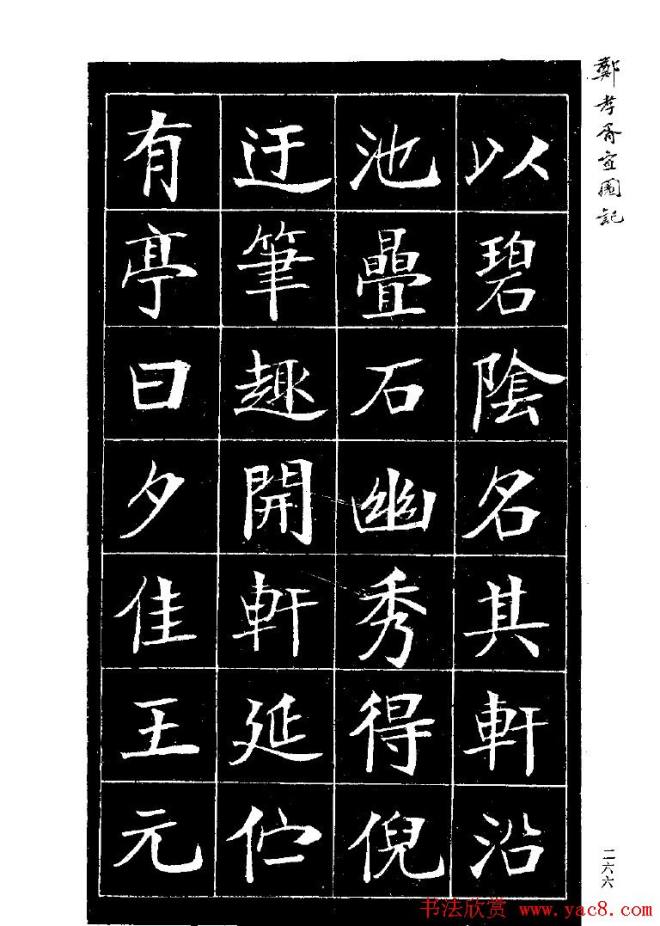 鄭孝胥宜園記
以碧陰名其軒沿
池疊石幽秀得倪
迂筆趣開軒延伫
有亭曰夕佳王元
二六六
书法欣赏 www.yac8.com